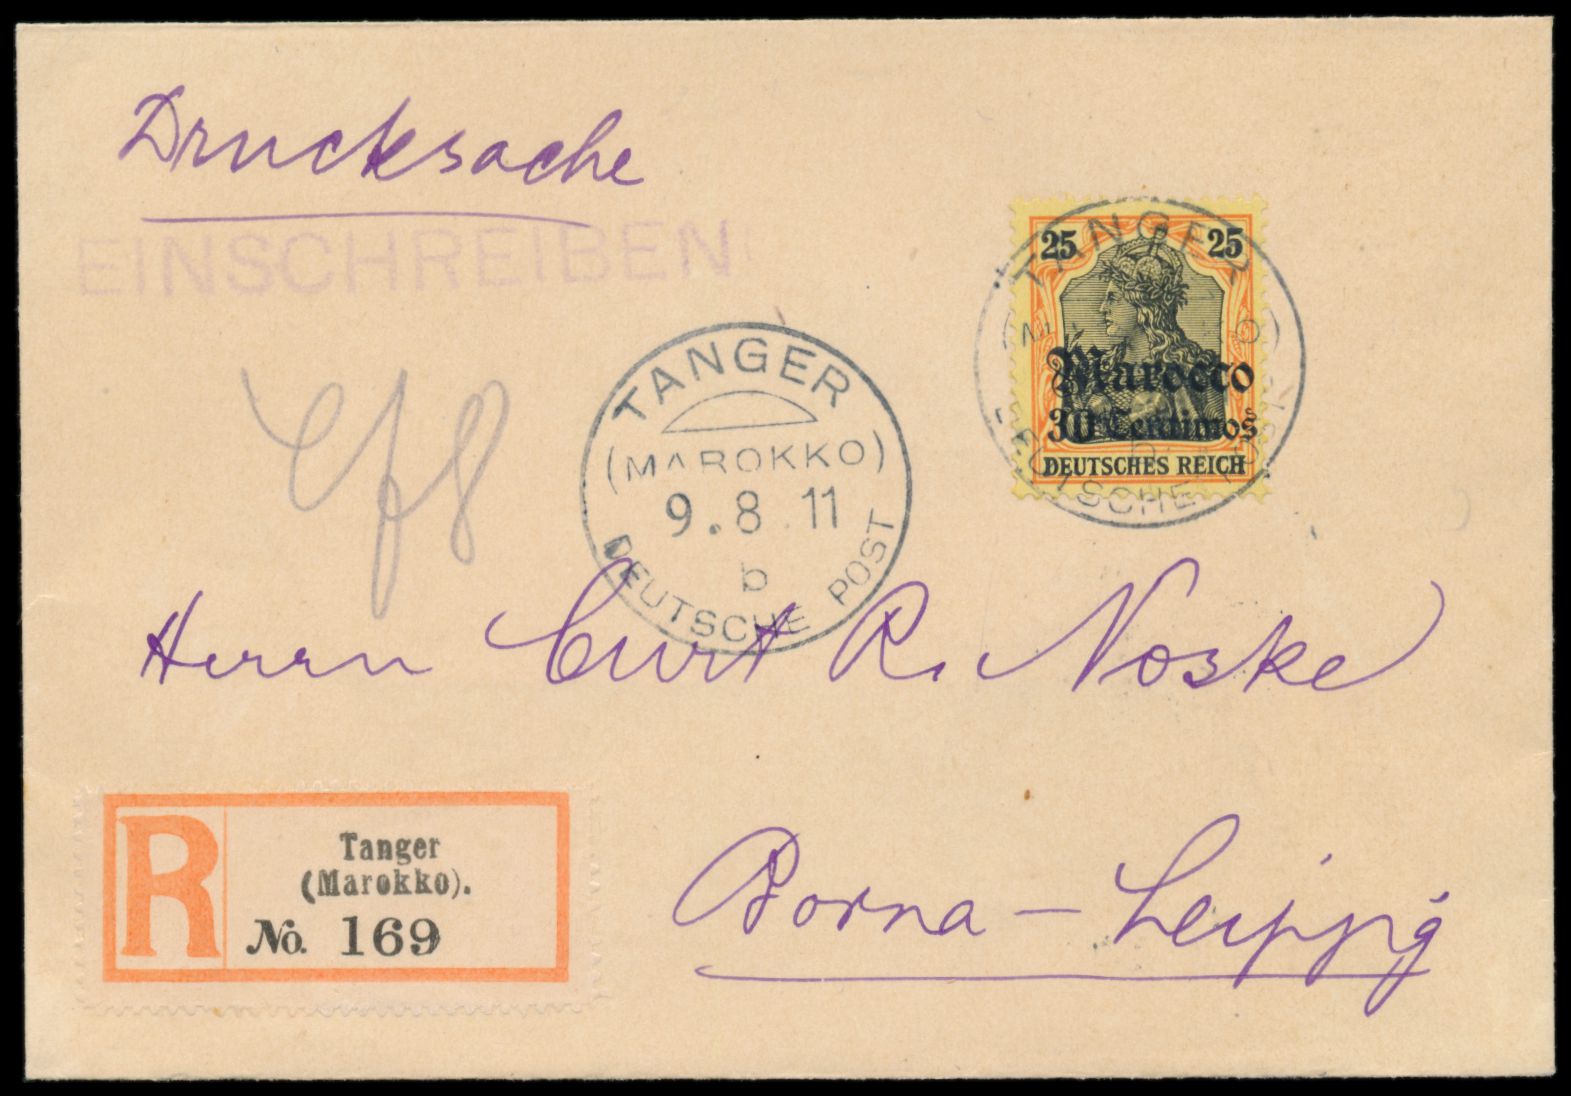 Drucksache
EINSCHREIBEN
TANGER
(MAROKKO)
9.8.11
b
DEUTSCHE POST
25 25
Marocco
30 Centimos
DEUTSCHES REICH
TANGER
DEUTSCHE POST
Herrn Curt R. Noske
Borna - Leipzig
R
Tanger
(Marokko).
No. 169